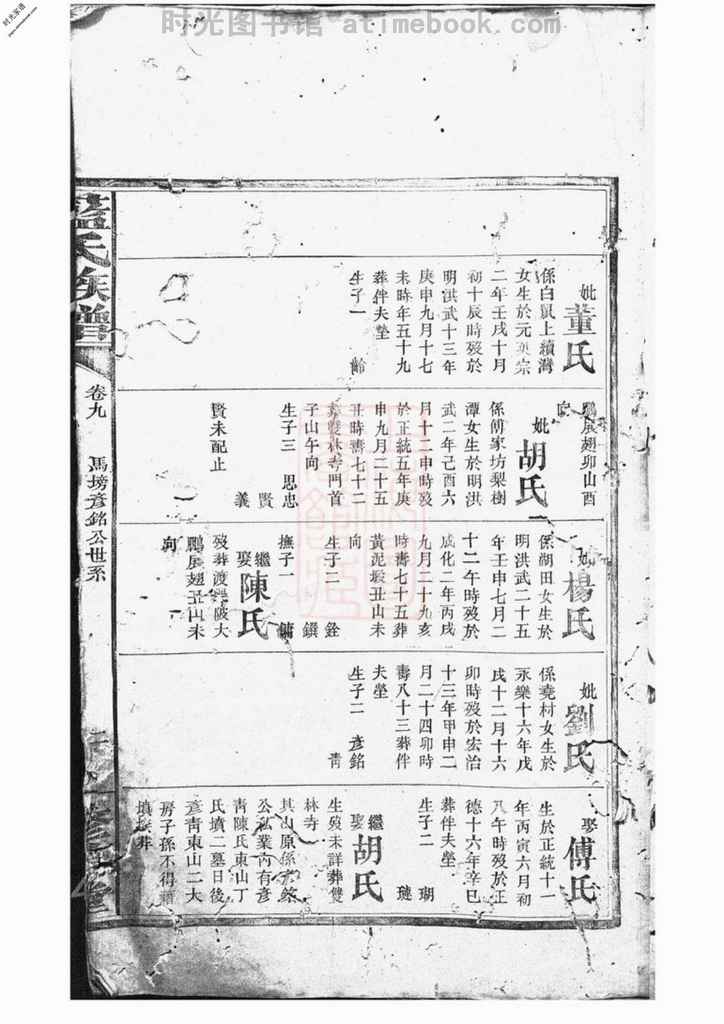 时光图书馆 - atimebook.com
时光家谱
藍氏族譜
卷九
馬塝彥銘公世系
妣董氏
係白鼠上續灣
女生於元英宗
二年壬戌十月
初十辰時歿於
明洪武十三年
庚申九月十七
未時年五十九
葬伴夫塋
生子一 齡
鵬展翅卯山酉
向
妣胡氏
係傅家坊梨樹
潭女生於明洪
武二年己酉六
月十二申時歿
於正統五年庚
申九月二十五
丑時壽七十二
葬雙林寺門首
子山午向
生子三 思忠
賢
義
賢未配止
妣楊氏
係湖田女生於
明洪武二十五
年壬申七月二
十二午時歿於
成化二年丙戌
九月二十九亥
時壽七十五葬
黃泥塅丑山未
向
生子二 銓
鐉
撫子一 鏞
繼娶陳氏
歿葬渡 陂大
鵬展翅丑山未
向
妣劉氏
係堯村女生於
永樂十六年戊
戌十二月十六
卯時歿於宏治
十三年甲申二
月二十四卯時
壽八十三葬伴
夫塋
生子二 彥銘
青
娶傅氏
生於正統十一
年丙寅六月初
八午時歿於正
德十六年辛巳
葬伴夫塋
生子二 瑚
璉
繼娶胡氏
生歿未詳葬雙
林寺
其山原係彥銘
公私業內有彥
青陳氏東山丁
氏墳二墓日後
彥青東山二大
房子孫不得藉
墳 葬